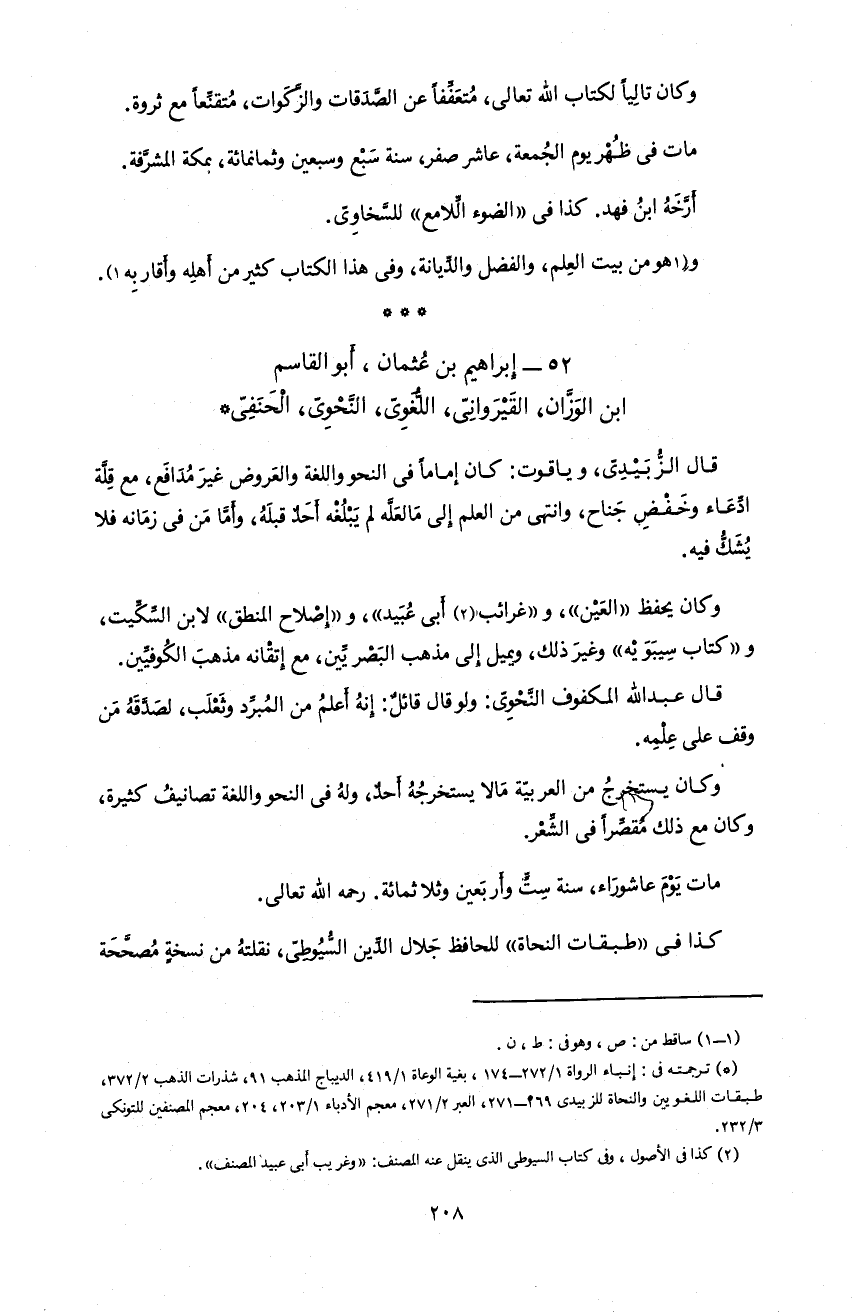 وكان تالِياً لكتاب الله تعالى، مُتعَفِّفاً عن الصَّدَقات والزَّكَوات، مُتقنِّعاً مع ثروة.
مات فى ظُهْر يوم الجُمعة، عاشر صفر، سنة سَبْع وسبعين وثمانمائة، بمكة المشرَّفة.
أرَّخَهُ ابنُ فهد. كذا فى «الضوء اللَّامع» للسَّخاوِىّ.
و(١هو من بيت العِلم، والفضل والدِّيانة، وفى هذا الكتاب كثير من أهلِه وأقاربِه ١).
* * *
٥٢ ــ إبراهيم بن عُثمان ، أبو القاسم
ابن الوَزَّان، القَيْرَوانِىّ، اللُّغَوِىّ، النَّحْوِىّ، الْحَنَفِىّ*
قال الزُّبَيْدِى، وياقوت: كان إماماً فى النحو واللغة والعَروض غيرَ مُدَافَع، مع قِلَّة
ادِّعَاء وخَفْضِ جَناح، وانتهى من العلم إلى مَالعَلَّه لم يَبْلُغْه أحَدٌ قبلَهُ، وأمَّا مَن فى زمَانه فلا
يُشَكُّ فيه.
وكان يحفظ «العَيْن»، و «غرائب(٢) أبى عُبَيد»، و «إصْلاح المنطق» لابن السِّكِّيت،
و «كتاب سِيبَوَيْه» وغيرَ ذلك، ويميل إلى مذهب البَصْريِّين، مع إتقْانه مذهبَ الكُوفيِّين.
قال عبدالله المكفوف النَّحْوِىّ: ولو قال قائلٌ: إنهُ أعلمُ من المُبرِّد وثَعْلَب، لصَدَّقَهُ مَن
وقف على عِلْمِه.
وكان يستخرجُ من العربيّة مَالا يستخرجُهُ أحدٌ، ولهُ فى النحو واللغة تصانيفُ كثيرة،
وكان مع ذلك مُقصِّراً فى الشِّعْر.
مات يَوْمَ عاشورَاء، سنة سِتٍّ وأربَعين وثلاثمائة. رحمه الله تعالى.
كذا فى «طبقات النحاة» للحافظ جَلال الدِّين السُّيُوطِىّ، نقلتهُ من نسخةٍ مُصحَّحَة
(١ــ١) ساقط من : ص ، وهوفى : ط ، ن .
(*) ترجمته فى : إنباء الرواة ٢٧٢/١ــ١٧٤ ، بغية الوعاة ٤١٩/١، الديباج المذهب ٩١، شذرات الذهب ٣٧٢/٢،
طبقات اللغويين والنحاة للزبيدى ٢٦٩ــ٢٧١، العبر ٢٧١/٢، معجم الأدباء ٢٠٣/١، ٢٠٤، معجم المصنفين للتونكى
٢٣٢/٣.
(٢) كذا فى الأصول ، وفى كتاب السيوطى الذى ينقل عنه المصنف: «وغريب أبى عبيد المصنف».
٢٠٨